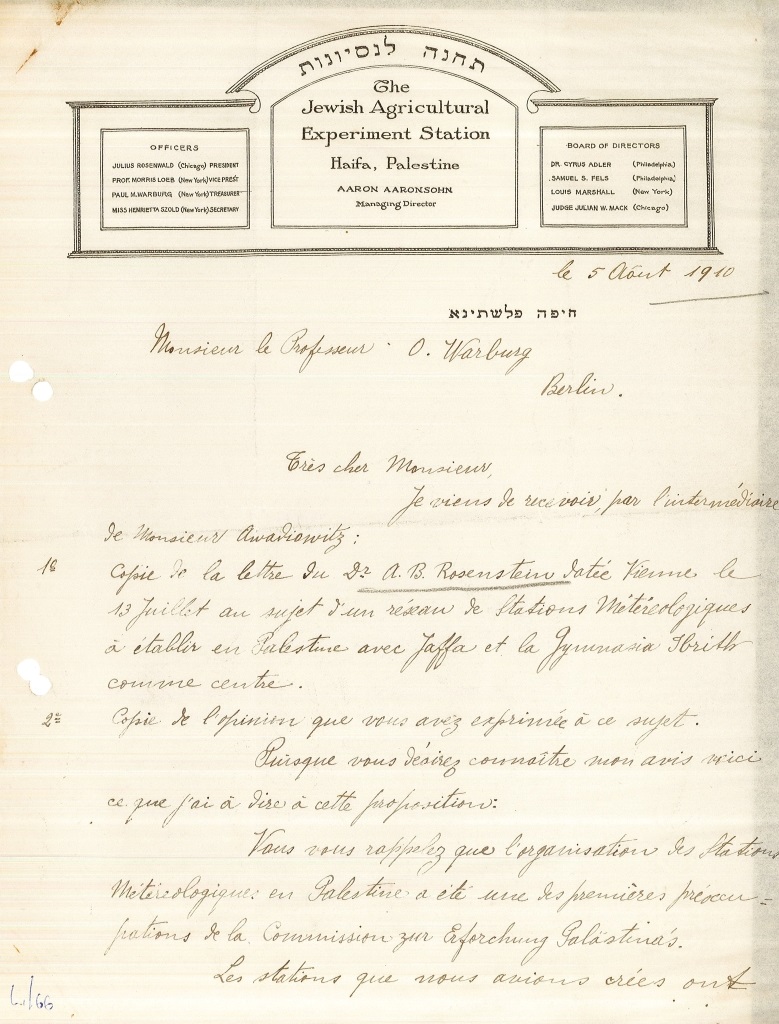 תחנה לנסיונות
The
Jewish Agricultural
Experiment Station
Haifa, Palestine
AARON AARONSOHN
Managing Director
OFFICERS
JULIUS ROSENWALD (Chicago) PRESIDENT
PROF. MORRIS LOEB (New York) VICE PREST
PAUL M. WARBURG (New York) TREASURER
MISS HENRIETTA SZOLD (New York) SECRETARY
BOARD OF DIRECTORS
DR. CYRUS ADLER (Philadelphia)
SAMUEL S. FELS (Philadelphia)
LOUIS MARSHALL (New York)
JUDGE JULIAN W. MACK (Chicago)
le 5 Août 1910
חיפה פלשתינא
Monsieur le Professeur O. Warburg
Berlin.
Très cher Monsieur,
Je viens de recevoir, par l'intermédiaire
de Monsieur Awadiowitz:
1º Copie de la lettre du Dr A. B. Rosenstein datée Vienne le
13 Juillet au sujet d'un réseau de Stations Météreologiques
à établir en Palestine avec Jaffa et la Gymnasia Ibrith
comme centre.
2º Copie de l'opinion que vous avez exprimée à ce sujet.
Puisque vous désirez connaître mon avis voici
ce que j'ai à dire à cette proposition:
Vous vous rappelez que l'organisation des Stations
Météreologiques en Palestine a été une des premières préoccu-
pations de la Commission zur Erforchung Palästina's.
Les stations que nous avions crées ont